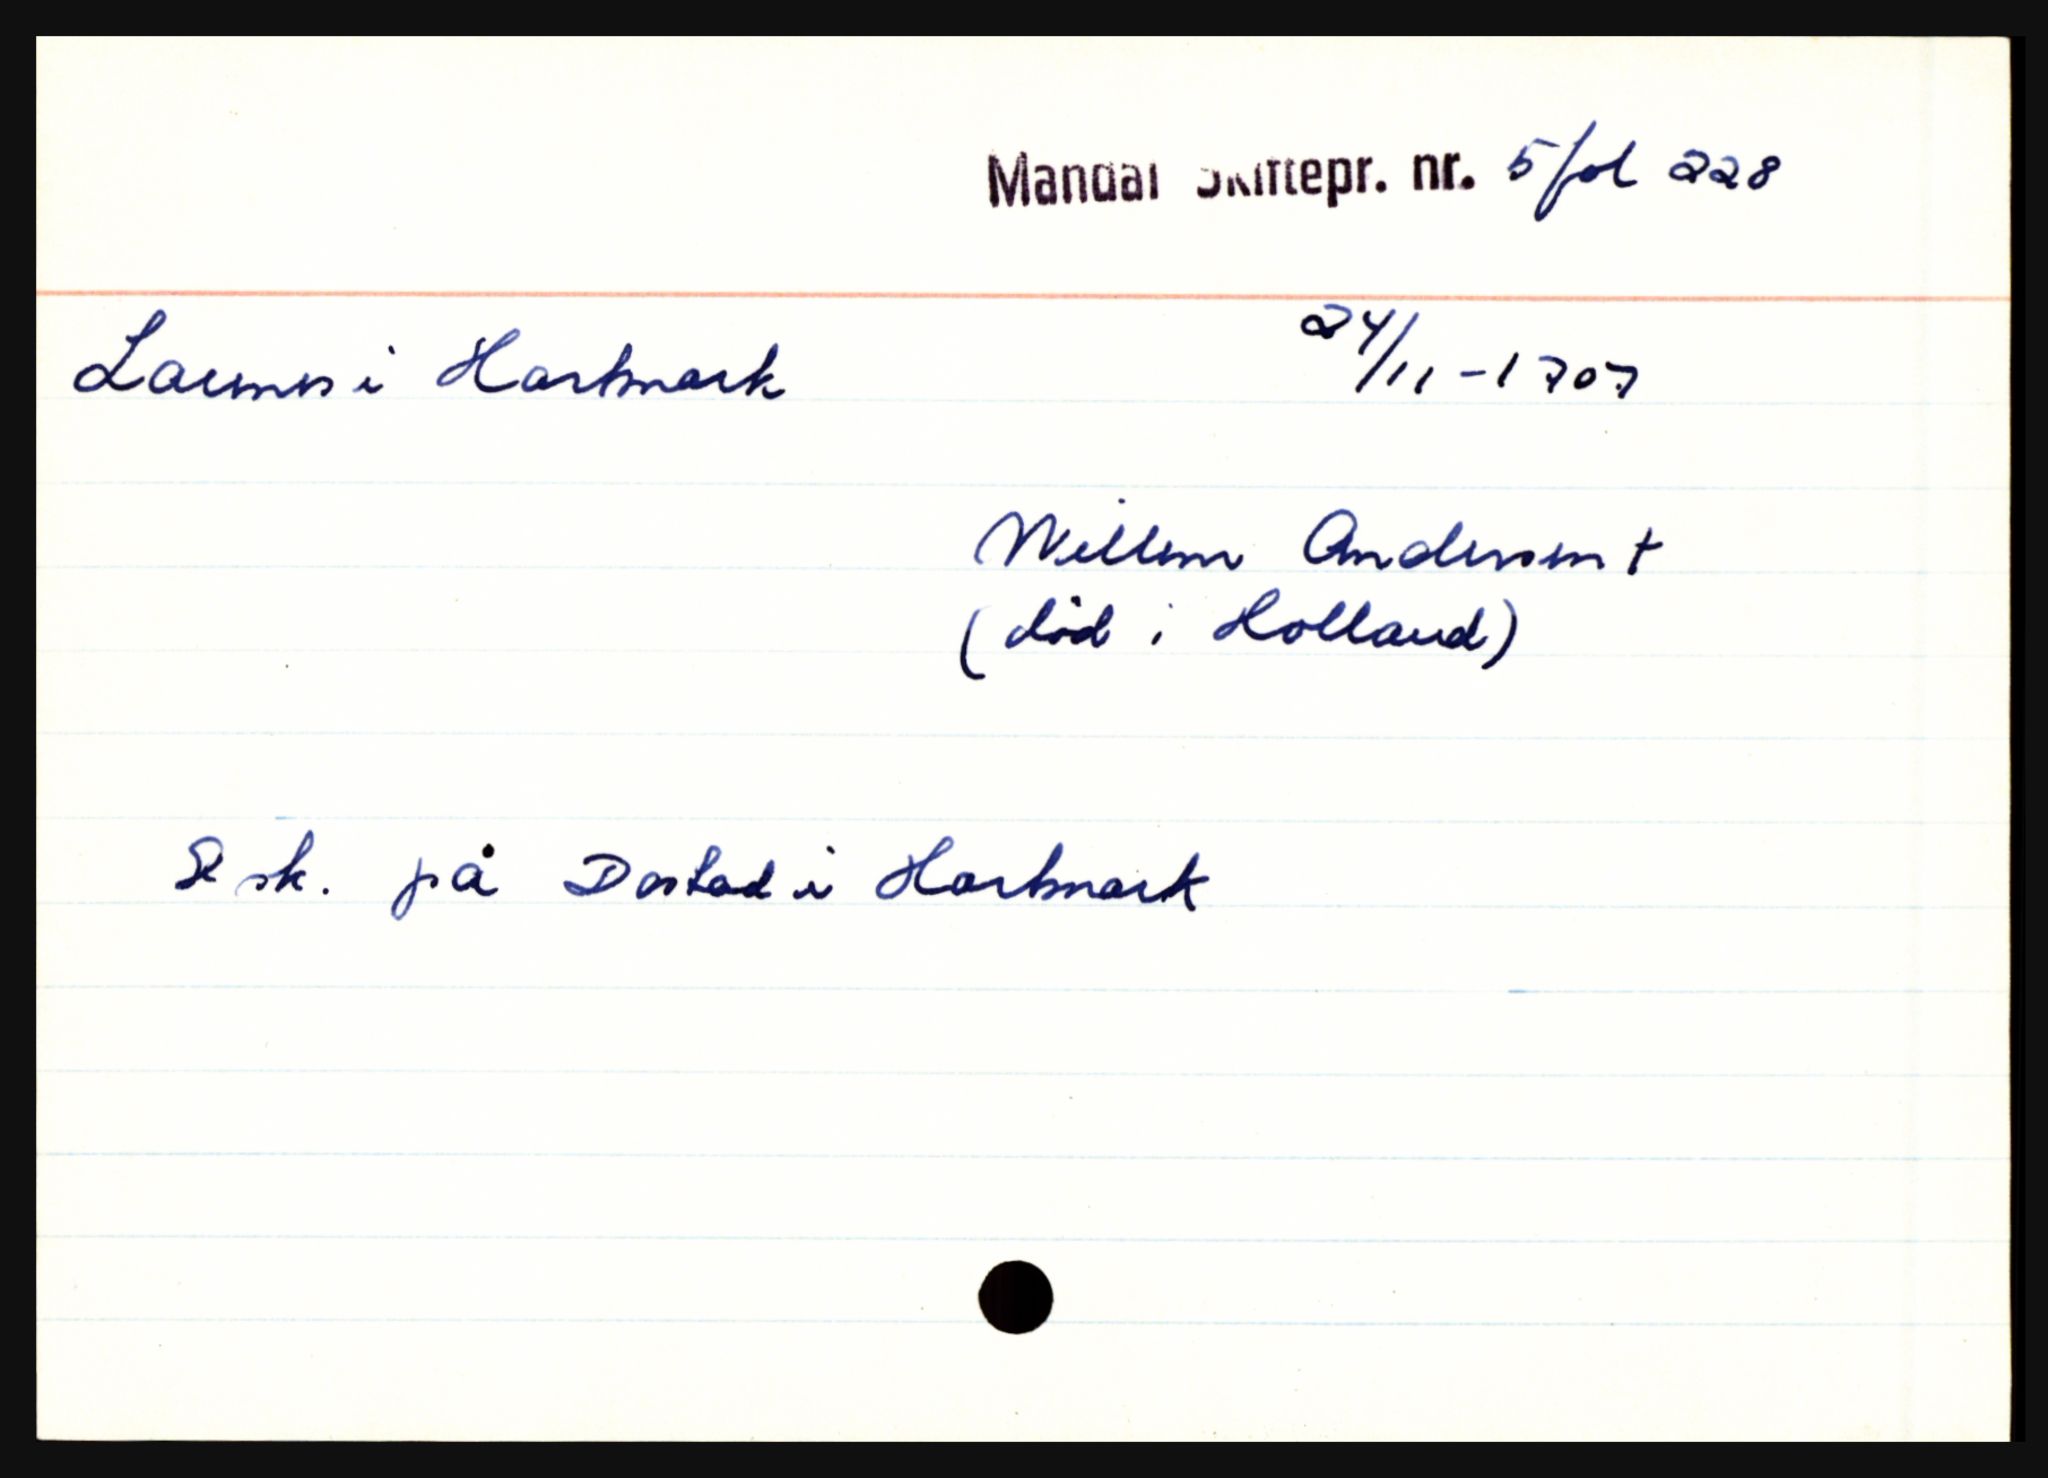 Mandal Skiftepr. nr. 5 fol 228
i Hartmark 24/11-1707
Willem Andersen +
(död i Holland)
sk. på Dastad i Hartmark